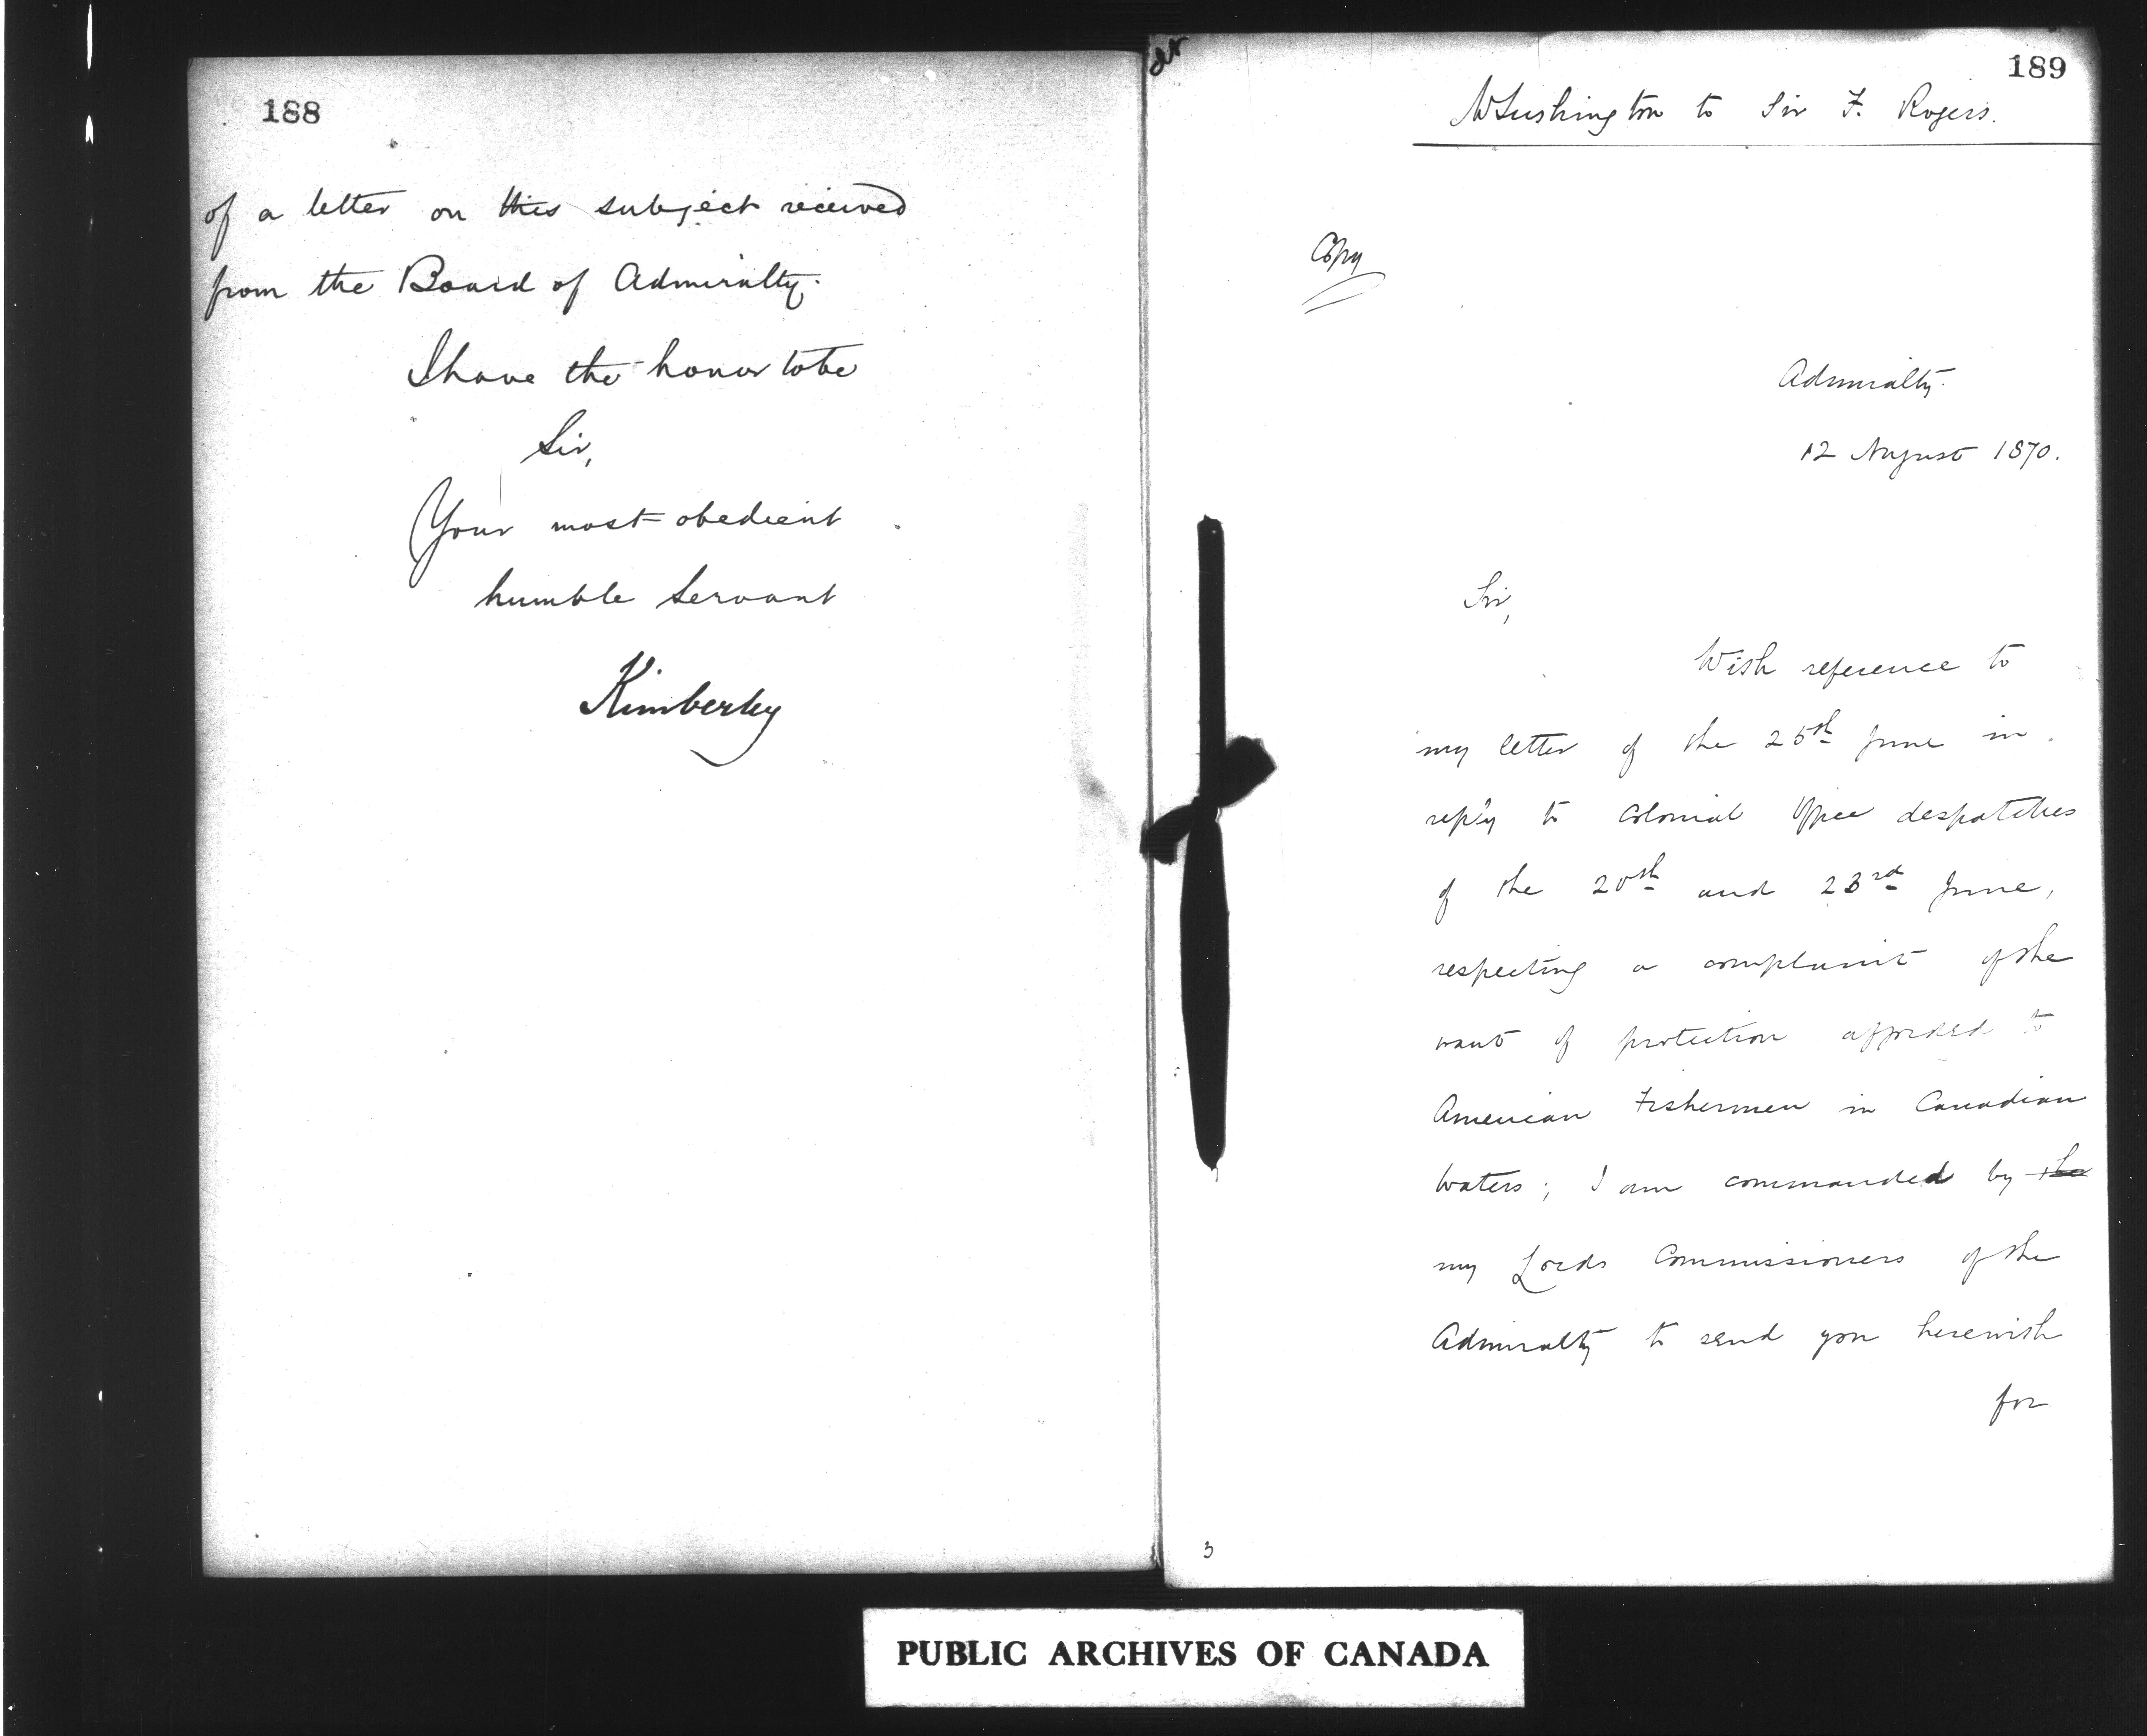 188
of a letter on this subject received
from the Board of Admiralty.
I have the honor to be
Sir,
Your most obedient
humble Servant
Kimberley
189
Lushington to Sir F. Rogers.
Copy
Admiralty.
12 August 1870.
Sir,
With reference to
my letter of the 25th June in
reply to Colonial Office despatches
of the 20th and 23rd June,
respecting a complaint of the
want of protection afforded to
American Fishermen in Canadian
Waters; I am commanded by the
my Lords Commissioners of the
Admiralty to send you herewith
for
3
PUBLIC ARCHIVES OF CANADA